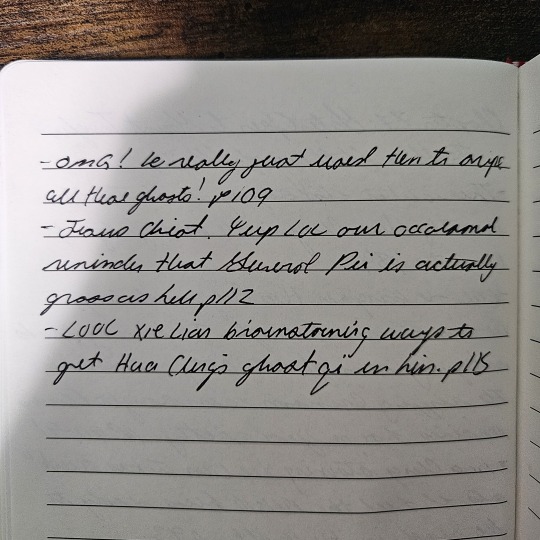 - OMG! He really just used them to wipe
all those ghosts! p109
- Jesus Christ. Yup LOL our occasional
reminder that General Pei is actually
gross as hell p112
- LOOL Xie Lian brainstorming ways to
get Hua Cheng's ghost qi in him. p115